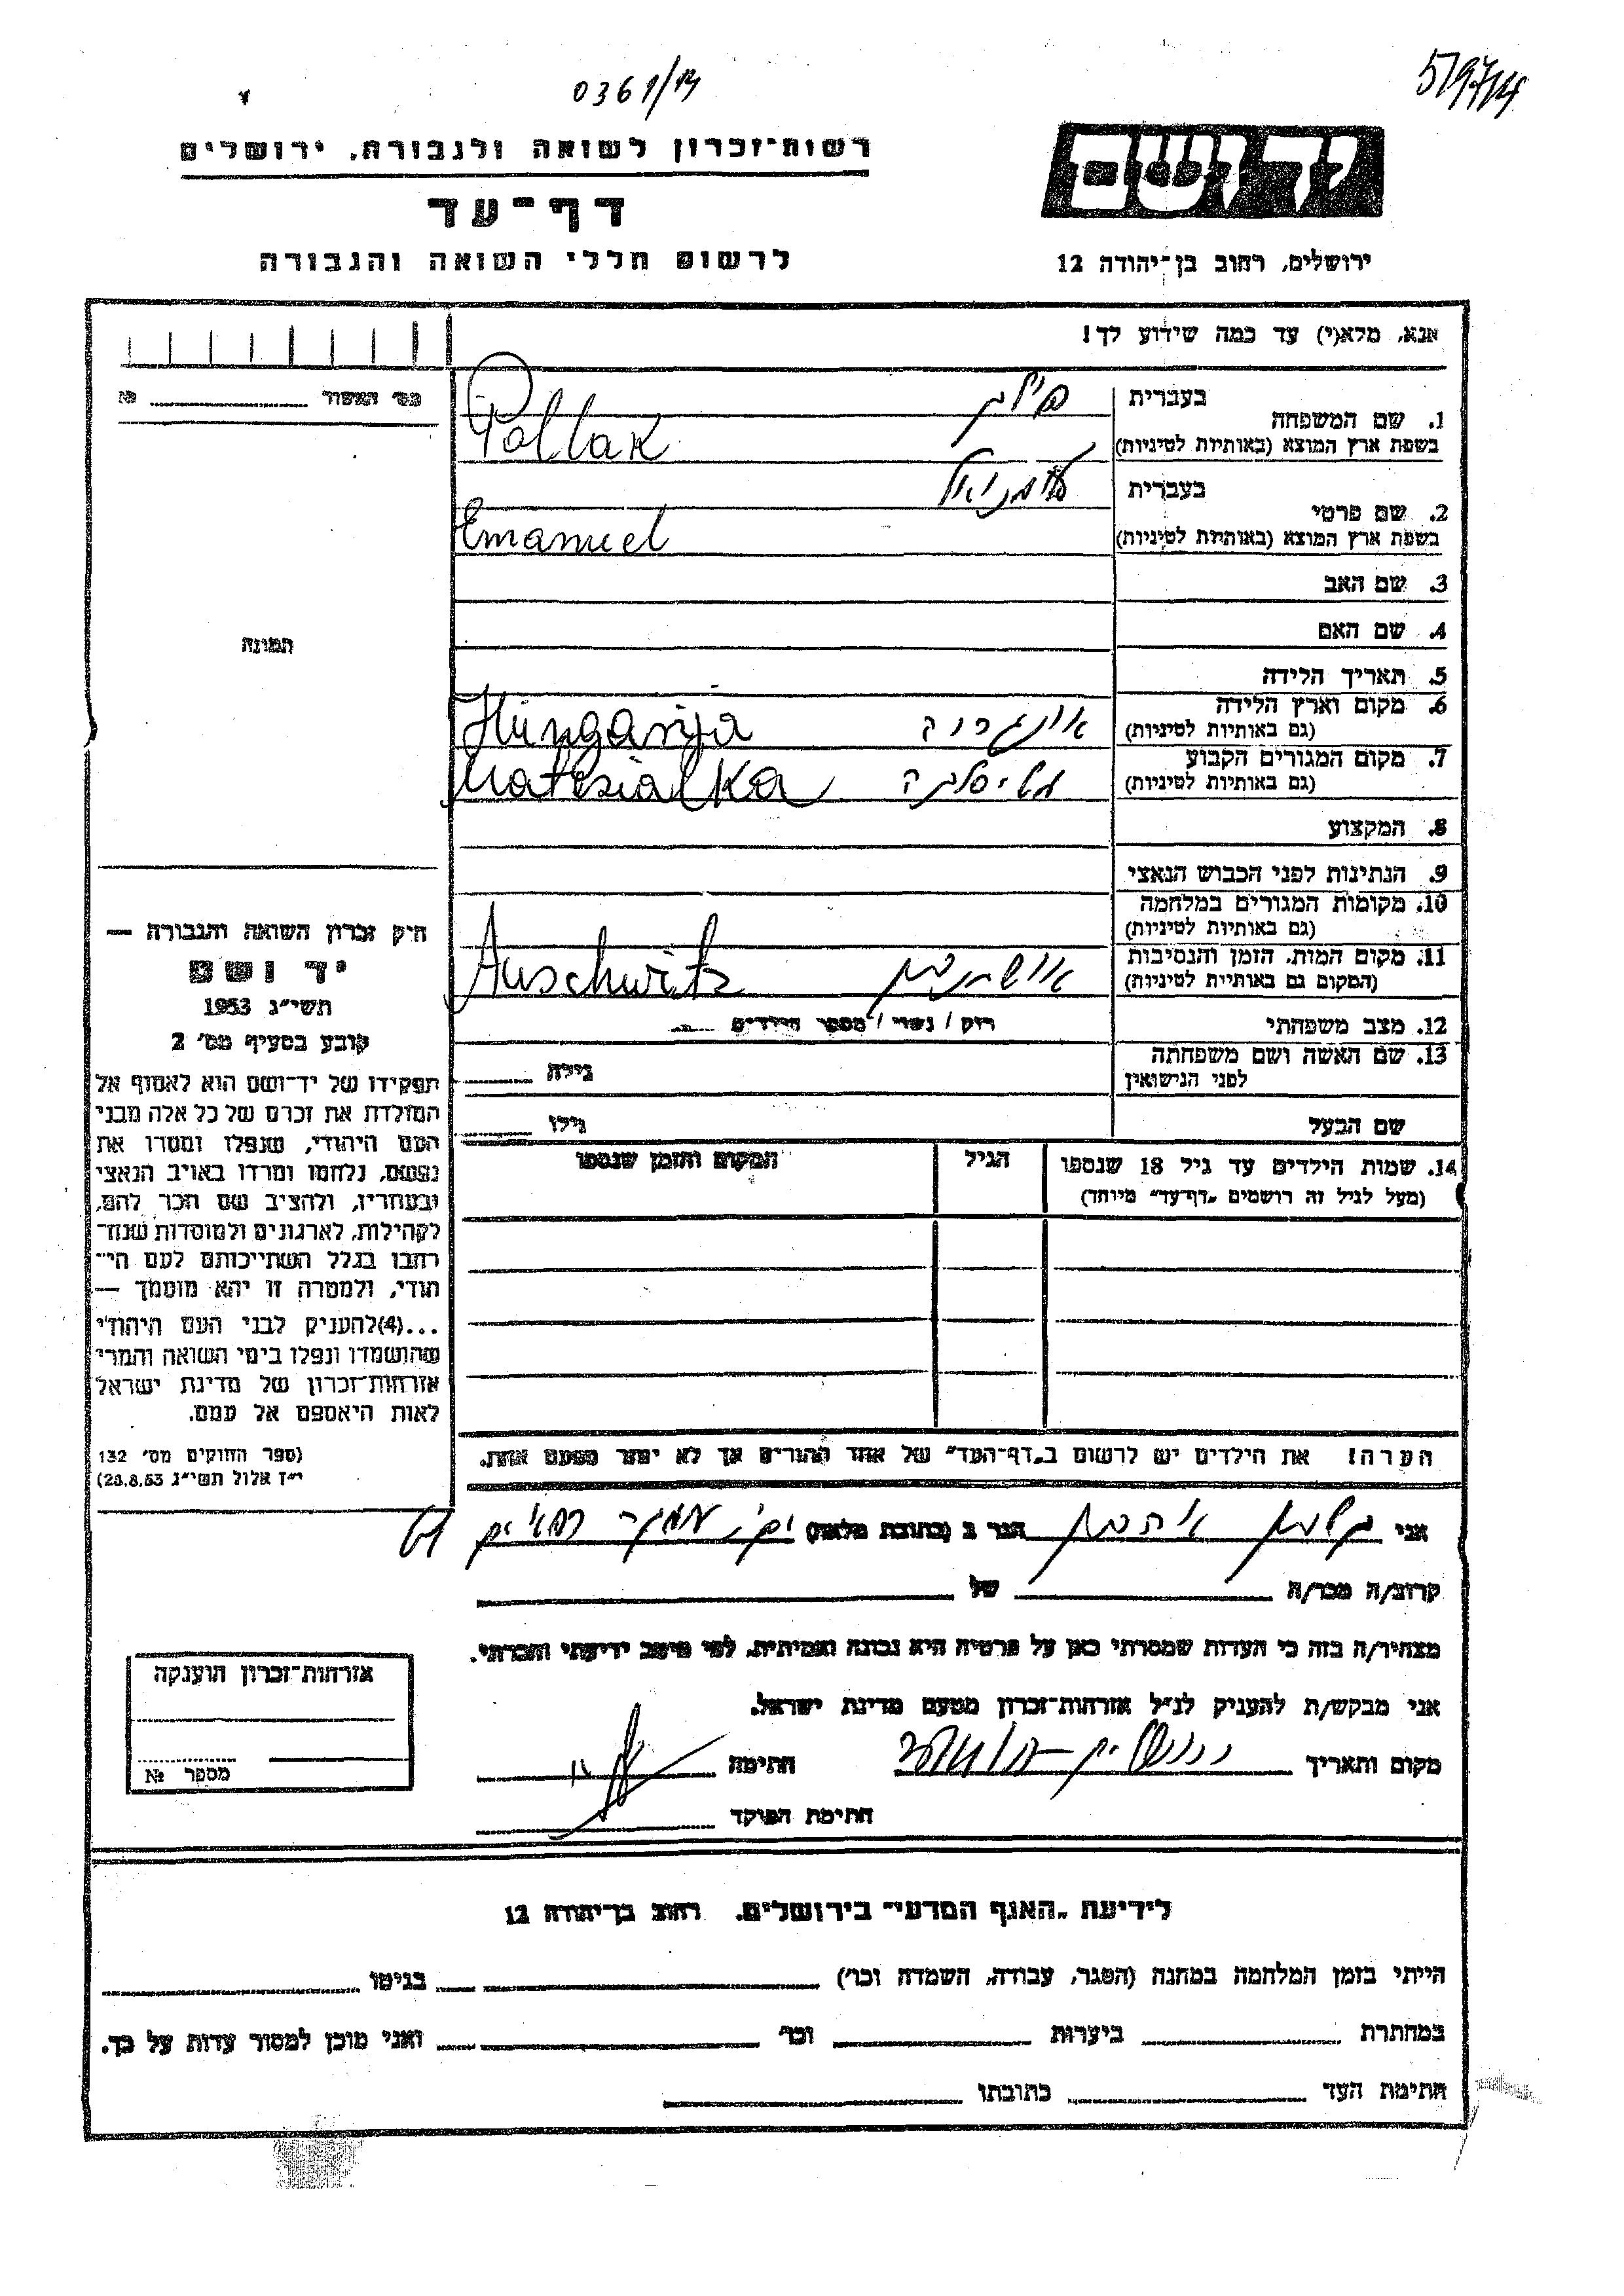 0361/14
רשות־זכרון לשואה ולגבורה, ירושלים
דף־עד
לרשום חללי השואה והגבורה
יד ושם
ירושלים, רחוב בן־יהודה 12
אנא, מלא(י) עד כמה שידוע לך!
מס׳ האשור №
בעברית
1. שם המשפחה
בשפת ארץ המוצא (באותיות לטיניות) Pollak
בעברית
2. שם פרטי
בשפת ארץ המוצא (באותיות לטיניות) Emanuel
3. שם האב
4. שם האם
תמונה
5. תאריך הלידה
6. מקום וארץ הלידה
(גם באותיות לטיניות) אונגריה Hungarija
7. מקום המגורים הקבוע
(גם באותיות לטיניות) Matesialka
8. המקצוע
9. הנתינות לפני הכבוש הנאצי
10. מקומות המגורים במלחמה
(גם באותיות לטיניות)
11. מקום המות, הזמן והנסיבות
(המקום גם באותיות לטיניות) Auschwitz
12. מצב משפחתי רוק / נשוי / מספר הילדים
13. שם האשה ושם משפחתה
לפני הנישואין גילה
שם הבעל גילו
14. שמות הילדים עד גיל 18 שנספו
(מעל לגיל זה רושמים „דף־עד״ מיוחד)
הגיל
המקום והזמן שנספו
הערה! את הילדים יש לרשום ב„דף־העד״ של אחד ההורים אך לא יותר מפעם אחת.
חוק זכרון השואה והגבורה —
יד ושם
תשי״ג 1953
קובע בסעיף מס׳ 2
תפקידו של יד־ושם הוא לאסוף אל
המולדת את זכרם של כל אלה מבני
העם היהודי, שנפלו ומסרו את
נפשם, נלחמו ומרדו באויב הנאצי
ובעוזריו, ולהציב שם וזכר להם,
לקהילות, לארגונים ולמוסדות שנח־
רבו בגלל השתייכותם לעם הי־
הודי, ולמטרה זו יהא מוסמך —
...(4)להעניק לבני העם היהודי
שהושמדו ונפלו בימי השואה והמרי
אזרחות־זכרון של מדינת ישראל
לאות היאספם אל עמם.
(ספר החוקים מס׳ 132
י״ז אלול תשי״ג 28.8.53)
אני הגר ב (כתובת מלאה)
קרוב/ה מכר/ה של
מצהיר/ה בזה כי העדות שמסרתי כאן על פרטיה היא נכונה ואמיתית, לפי מיטב ידיעתי והכרתי.
אני מבקש/ת להעניק לנ״ל אזרחות־זכרון מטעם מדינת ישראל.
מקום ותאריך חתימה
חתימת הפוקד
אזרחות־זכרון הוענקה
מספר №
לידיעת „האגף המדעי״ בירושלים. רחוב בן־יהודה 12
הייתי בזמן המלחמה במחנה (הסגר, עבודה, השמדה וכו׳) בגיטו
במחתרת ביערות וכו׳ ואני מוכן למסור עדות על כך.
חתימת העד כתובתו